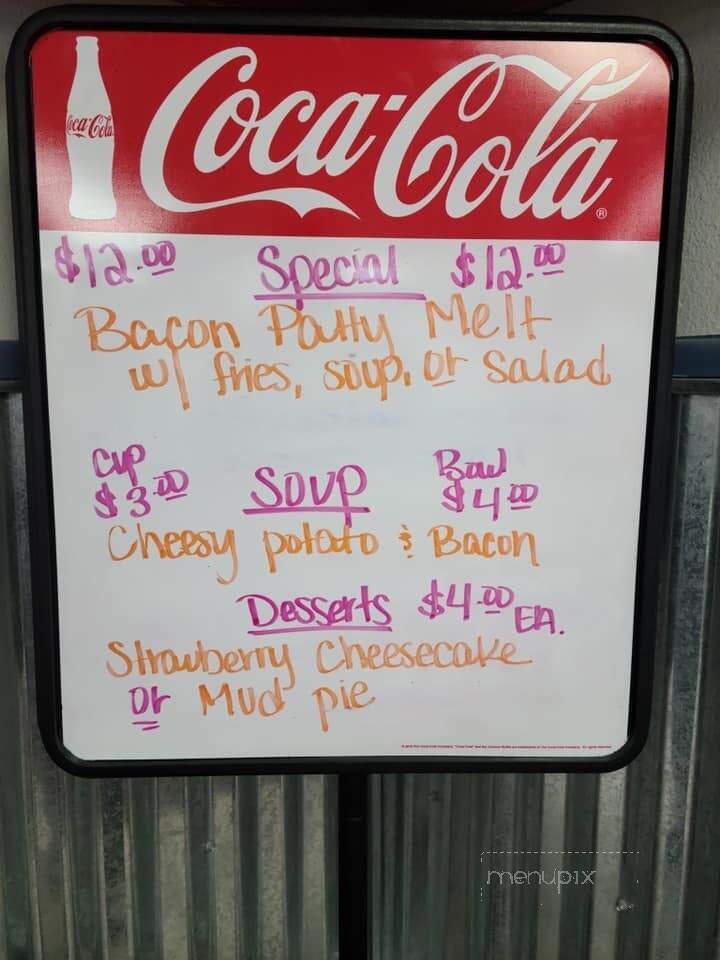 Coca-Cola
Coca-Cola ®
$12.00 Special $12.00
Bacon Patty Melt
w/ fries, soup, or salad
Cup Bowl
$3.00 Soup $4.00
Cheesy potato & Bacon
Desserts $4.00 EA.
Strawberry Cheesecake
or Mud pie
menupix